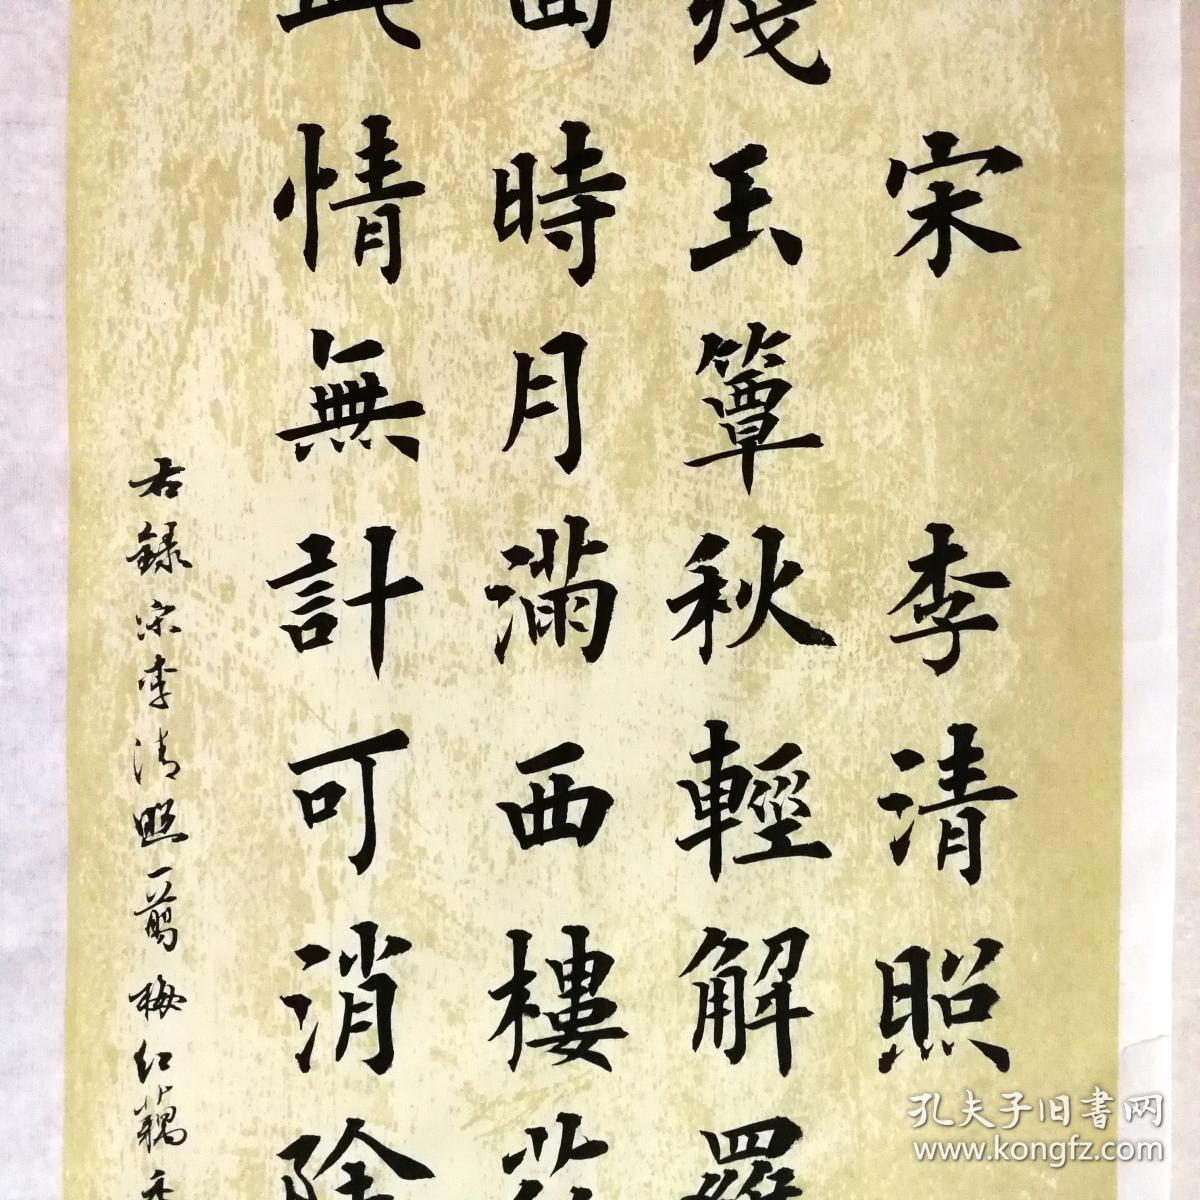 宋 李清照
殘玉簟秋輕解羅
回時月滿西樓花
此情無計可消除
右録宋李清照一翦梅紅藕香
孔夫子旧書网
www.kongfz.com